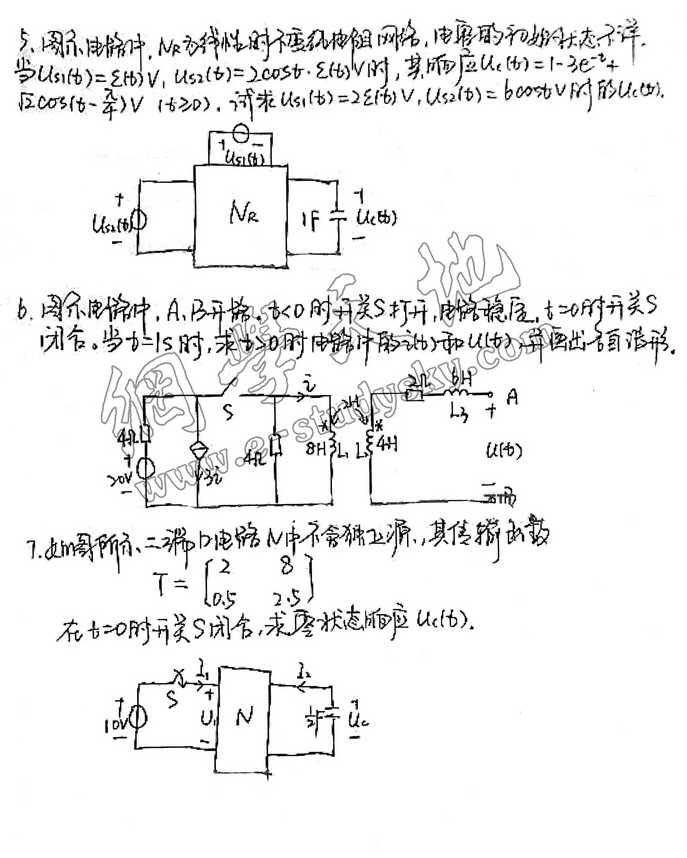 5. 图示电路中, NR为线性时不变纯电阻网络, 电容的初始状态不详.
当Us1(t)=ε(t)V, Us2(t)=2cost·ε(t)V时, 其响应Uc(t)=1-3e⁻ᵗ+
√2cos(t-π/4)V (t≥0). 试求Us1(t)=2ε(t)V, Us2(t)=6costV时的Uc(t).
+ Us1(t) -
+ Us2(t) -
NR
1F
+ Uc(t) -
6. 图示电路中, A, B开路. t<0时开关S打开, 电路稳定, t=0时开关S
闭合。当t=1s时, 求t>0时电路中的i(t)和u(t), 并画出各自波形.
S
i
2H
2Ω
6H
L3
A
4Ω
+ 20V -
3i
4Ω
* 8H L1
L2 * 4H
+ u(t) -
B
網學天地
www.e-studysky.com
7. 如图所示, 二端口电路N中不含独立源, 其传输函数
T = [2 8
0.5 2.5]
在t=0时开关S闭合, 求零状态响应Uc(t).
S
I1
I2
+ 10V -
+ U1 -
N
1/2F
+ Uc -